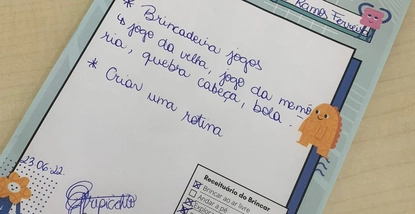 Ramos Ferreira
* Brincadeira jogos
↳ jogo da velha, jogo da memó
ria, quebra cabeça, bola.
* Criar uma rotina
23.06.22
Receituário do Brincar
Brincar ao ar livre
Andar a pé